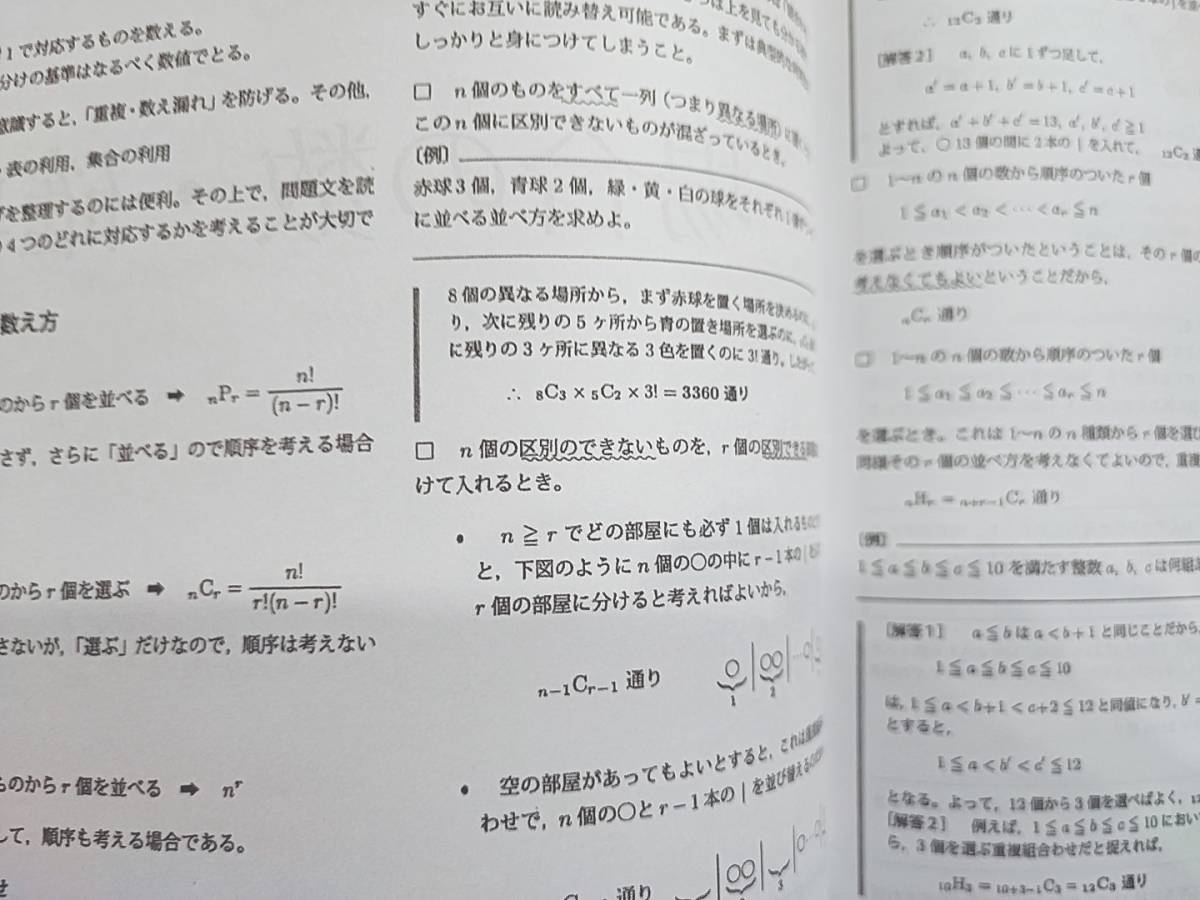 1で対応するものを数える。
分けの基準はなるべく数値でとる。
意識すると,「重複・数え漏れ」を防げる。その他,
・表の利用,集合の利用
を整理するのには便利。その上で,問題文を読
4つのどれに対応するかを考えることが大切で
数え方
のからr個を並べる ➡ nPr = n!/(n−r)!
さず,さらに「並べる」ので順序を考える場合
のからr個を選ぶ ➡ nCr = n!/r!(n−r)!
さないが,「選ぶ」だけなので,順序は考えない
ものからr個を並べる ➡ n^r
して,順序も考える場合である。
せ
すぐにお互いに読み替え可能である。まずは典型的な
しっかりと身につけてしまうこと。
□ n個のものをすべて一列(つまり異なる場所)に
このn個に区別できないものが混ざっているとき。
〔例〕
赤球3個,青球2個,緑・黄・白の球をそれぞれ1個
に並べる並べ方を求めよ。
8個の異なる場所から,まず赤球を置く場所を決めるの
り,次に残りの5ヶ所から青の置き場所を選ぶのに,
に残りの3ヶ所に異なる3色を置くのに3!通り。
∴ 8C3 × 5C2 × 3! = 3360 通り
□ n個の区別のできないものを,r個の区別できる
けて入れるとき。
• n ≧ r でどの部屋にも必ず1個は入れるもの
と,下図のようにn個の○の中にr−1本の|
r個の部屋に分けると考えればよいから,
n−1Cr−1 通り ○|○○|…
1 2
• 空の部屋があってもよいとすると,これは
わせで,n個の○とr−1本の|を並び替える
通り |○○| |○…
3
∴ 12C2 通り
[解答2] a, b, cに1ずつ足して,
a′ = a+1, b′ = b+1, c′ = c+1
とすれば,a′ + b′ + c′ = 13, a′, b′, c′ ≧ 1
よって,○13個の間に2本の|を入れて,12C2
□ 1〜nのn個の数から順序のついたr個
1 ≦ a1 < a2 < ⋯ < ar ≦ n
を選ぶとき順序がついたということは,そのr個の
考えなくてもよいということだから,
nCr 通り
□ 1〜nのn個の数から順序のついたr個
1 ≦ a1 ≦ a2 ≦ ⋯ ≦ ar ≦ n
を選ぶとき。これは1〜nのn種類からr個を選び
同様そのr個の並べ方を考えなくてよいので,重複
nHr = n+r−1Cr 通り
〔例〕
1 ≦ a ≦ b ≦ c ≦ 10 を満たす整数a, b, cは何組
[解答1] a ≦ b は a < b+1 と同じことだから,
1 ≦ a ≦ b ≦ c ≦ 10
は,1 ≦ a < b+1 < c+2 ≦ 12 と同値になり,b′ =
とすると,
1 ≦ a < b′ < c′ ≦ 12
となる。よって,12個から3個を選べばよく,12
[解答2] 例えば,1 ≦ a ≦ b ≦ c ≦ 10 におい
ら,3個を選ぶ重複組合わせだと捉えれば,
10H3 = 10+3−1C3 = 12C3 通り